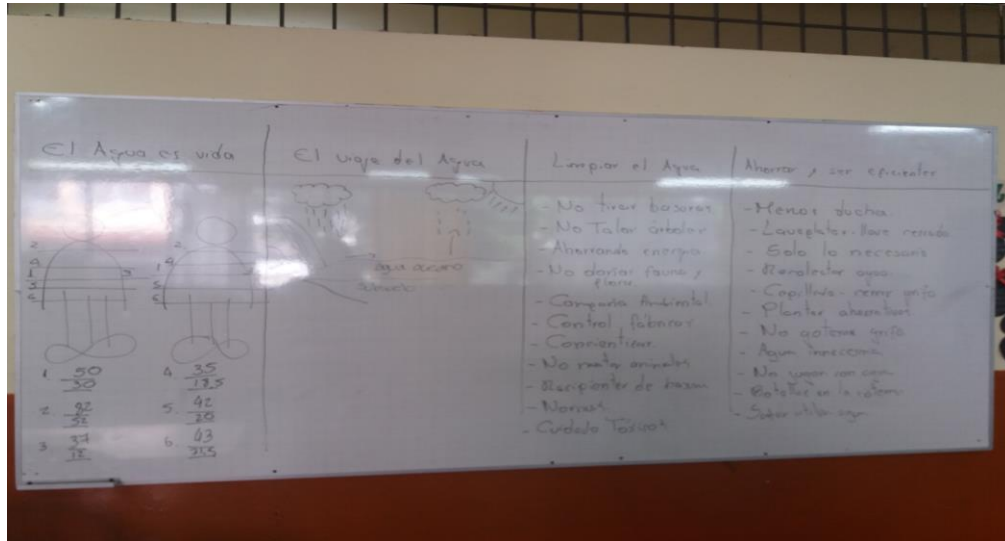 El Agua es vida
2
4
1
3
5
6
2
4
1
5
6
1. 50
30
2. 92
52
3. 37
4. 35
18,5
5. 42
20
6. 43
21,5
El viaje del Agua
agua oceano
Limpiar el Agua
- No tirar basuras
- No Talar árboles
- Ahorrando energía
- No dañar fauna y
flora
- Campaña Ambiental
- Control fábricas
- Concientizar
- No matar animales
- Recipientes de basura
- Normas
- Cuidado Tóxicos
Ahorrar y ser eficientes
- Menor ducha
- Lavaplatos: llave cerrada
- Solo lo necesario
- Recolectar agua
- Cepillado - cerrar grifo
- Plantear alternativas
- No goteras grifo
- Agua innecesaria
- Botellas en la cisterna
- Saber utilizar agua